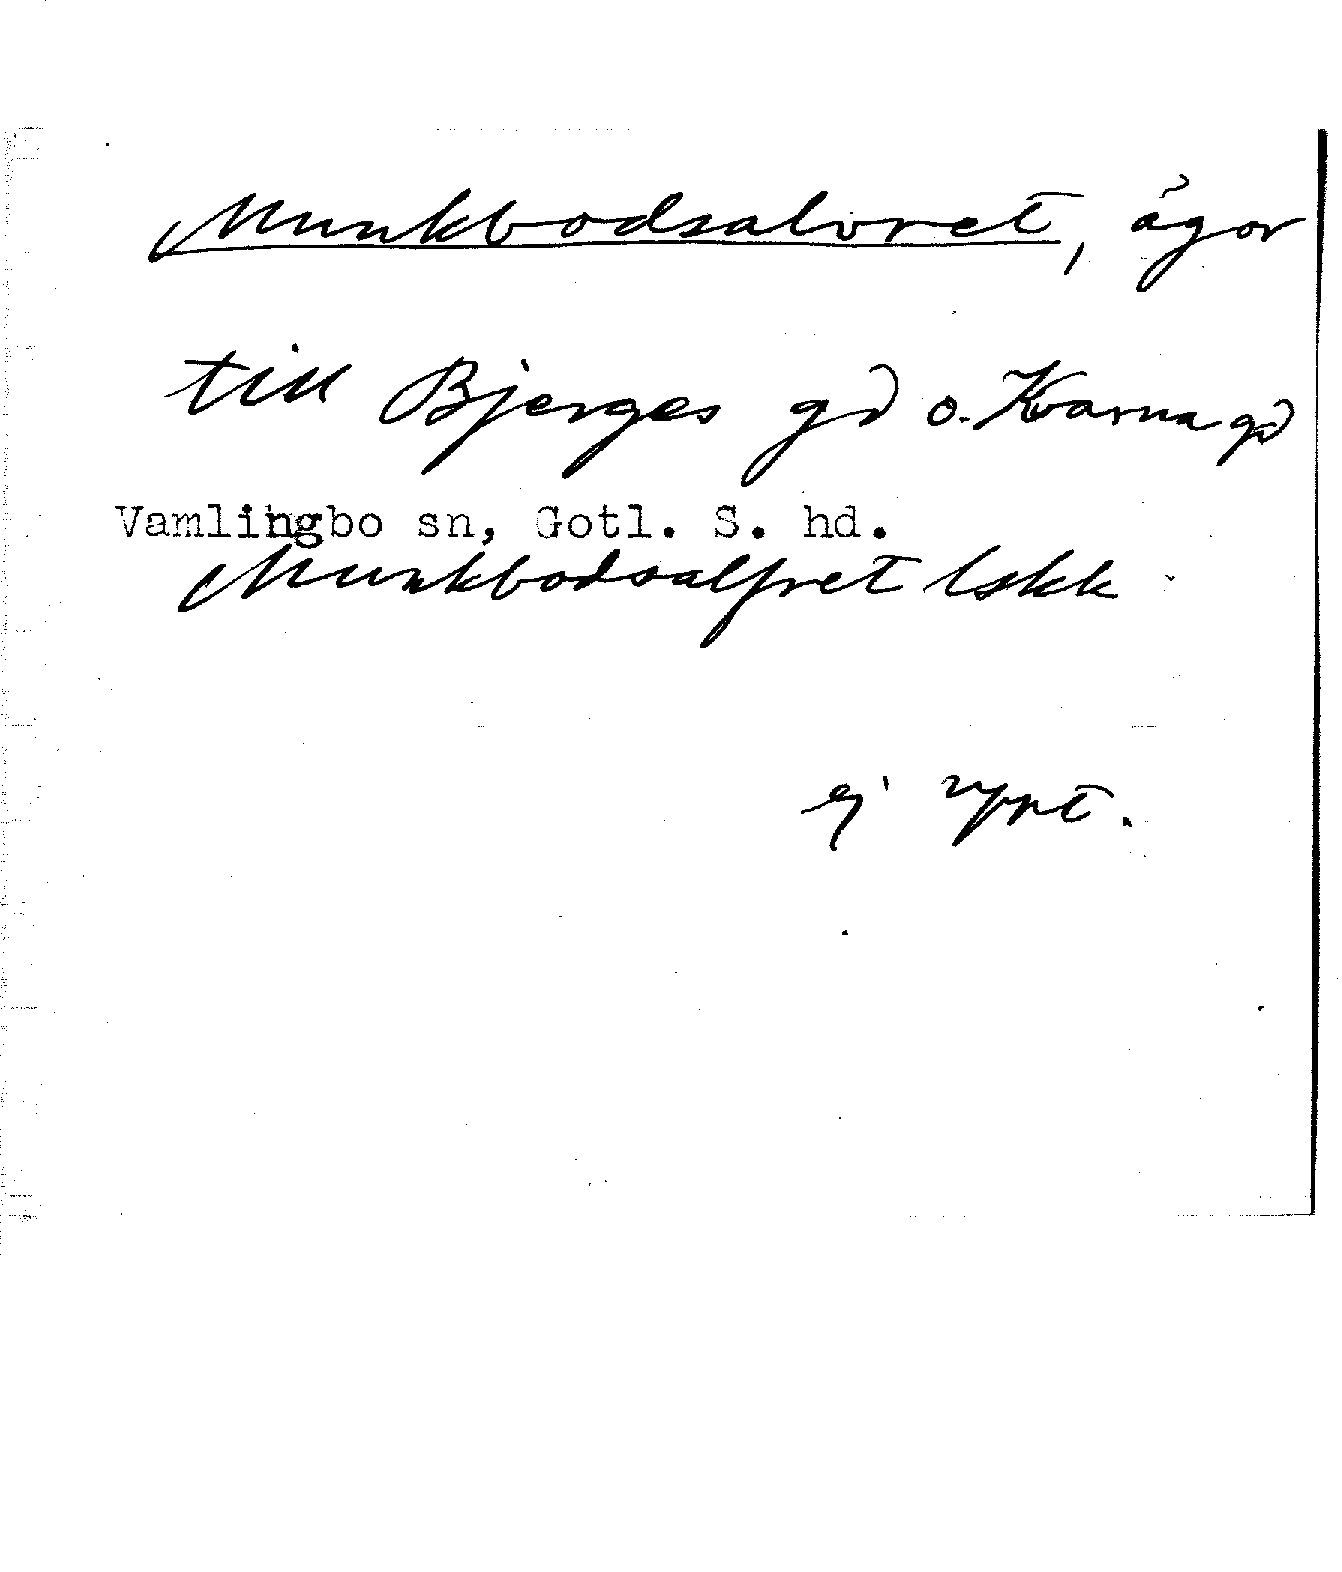 Munkbodsalvret, ägor
till Bjerges gd o. Kvarna gd
Vamlingbo sn, Gotl. S. hd.
Munkbodsalfret lskk
ej uppt.